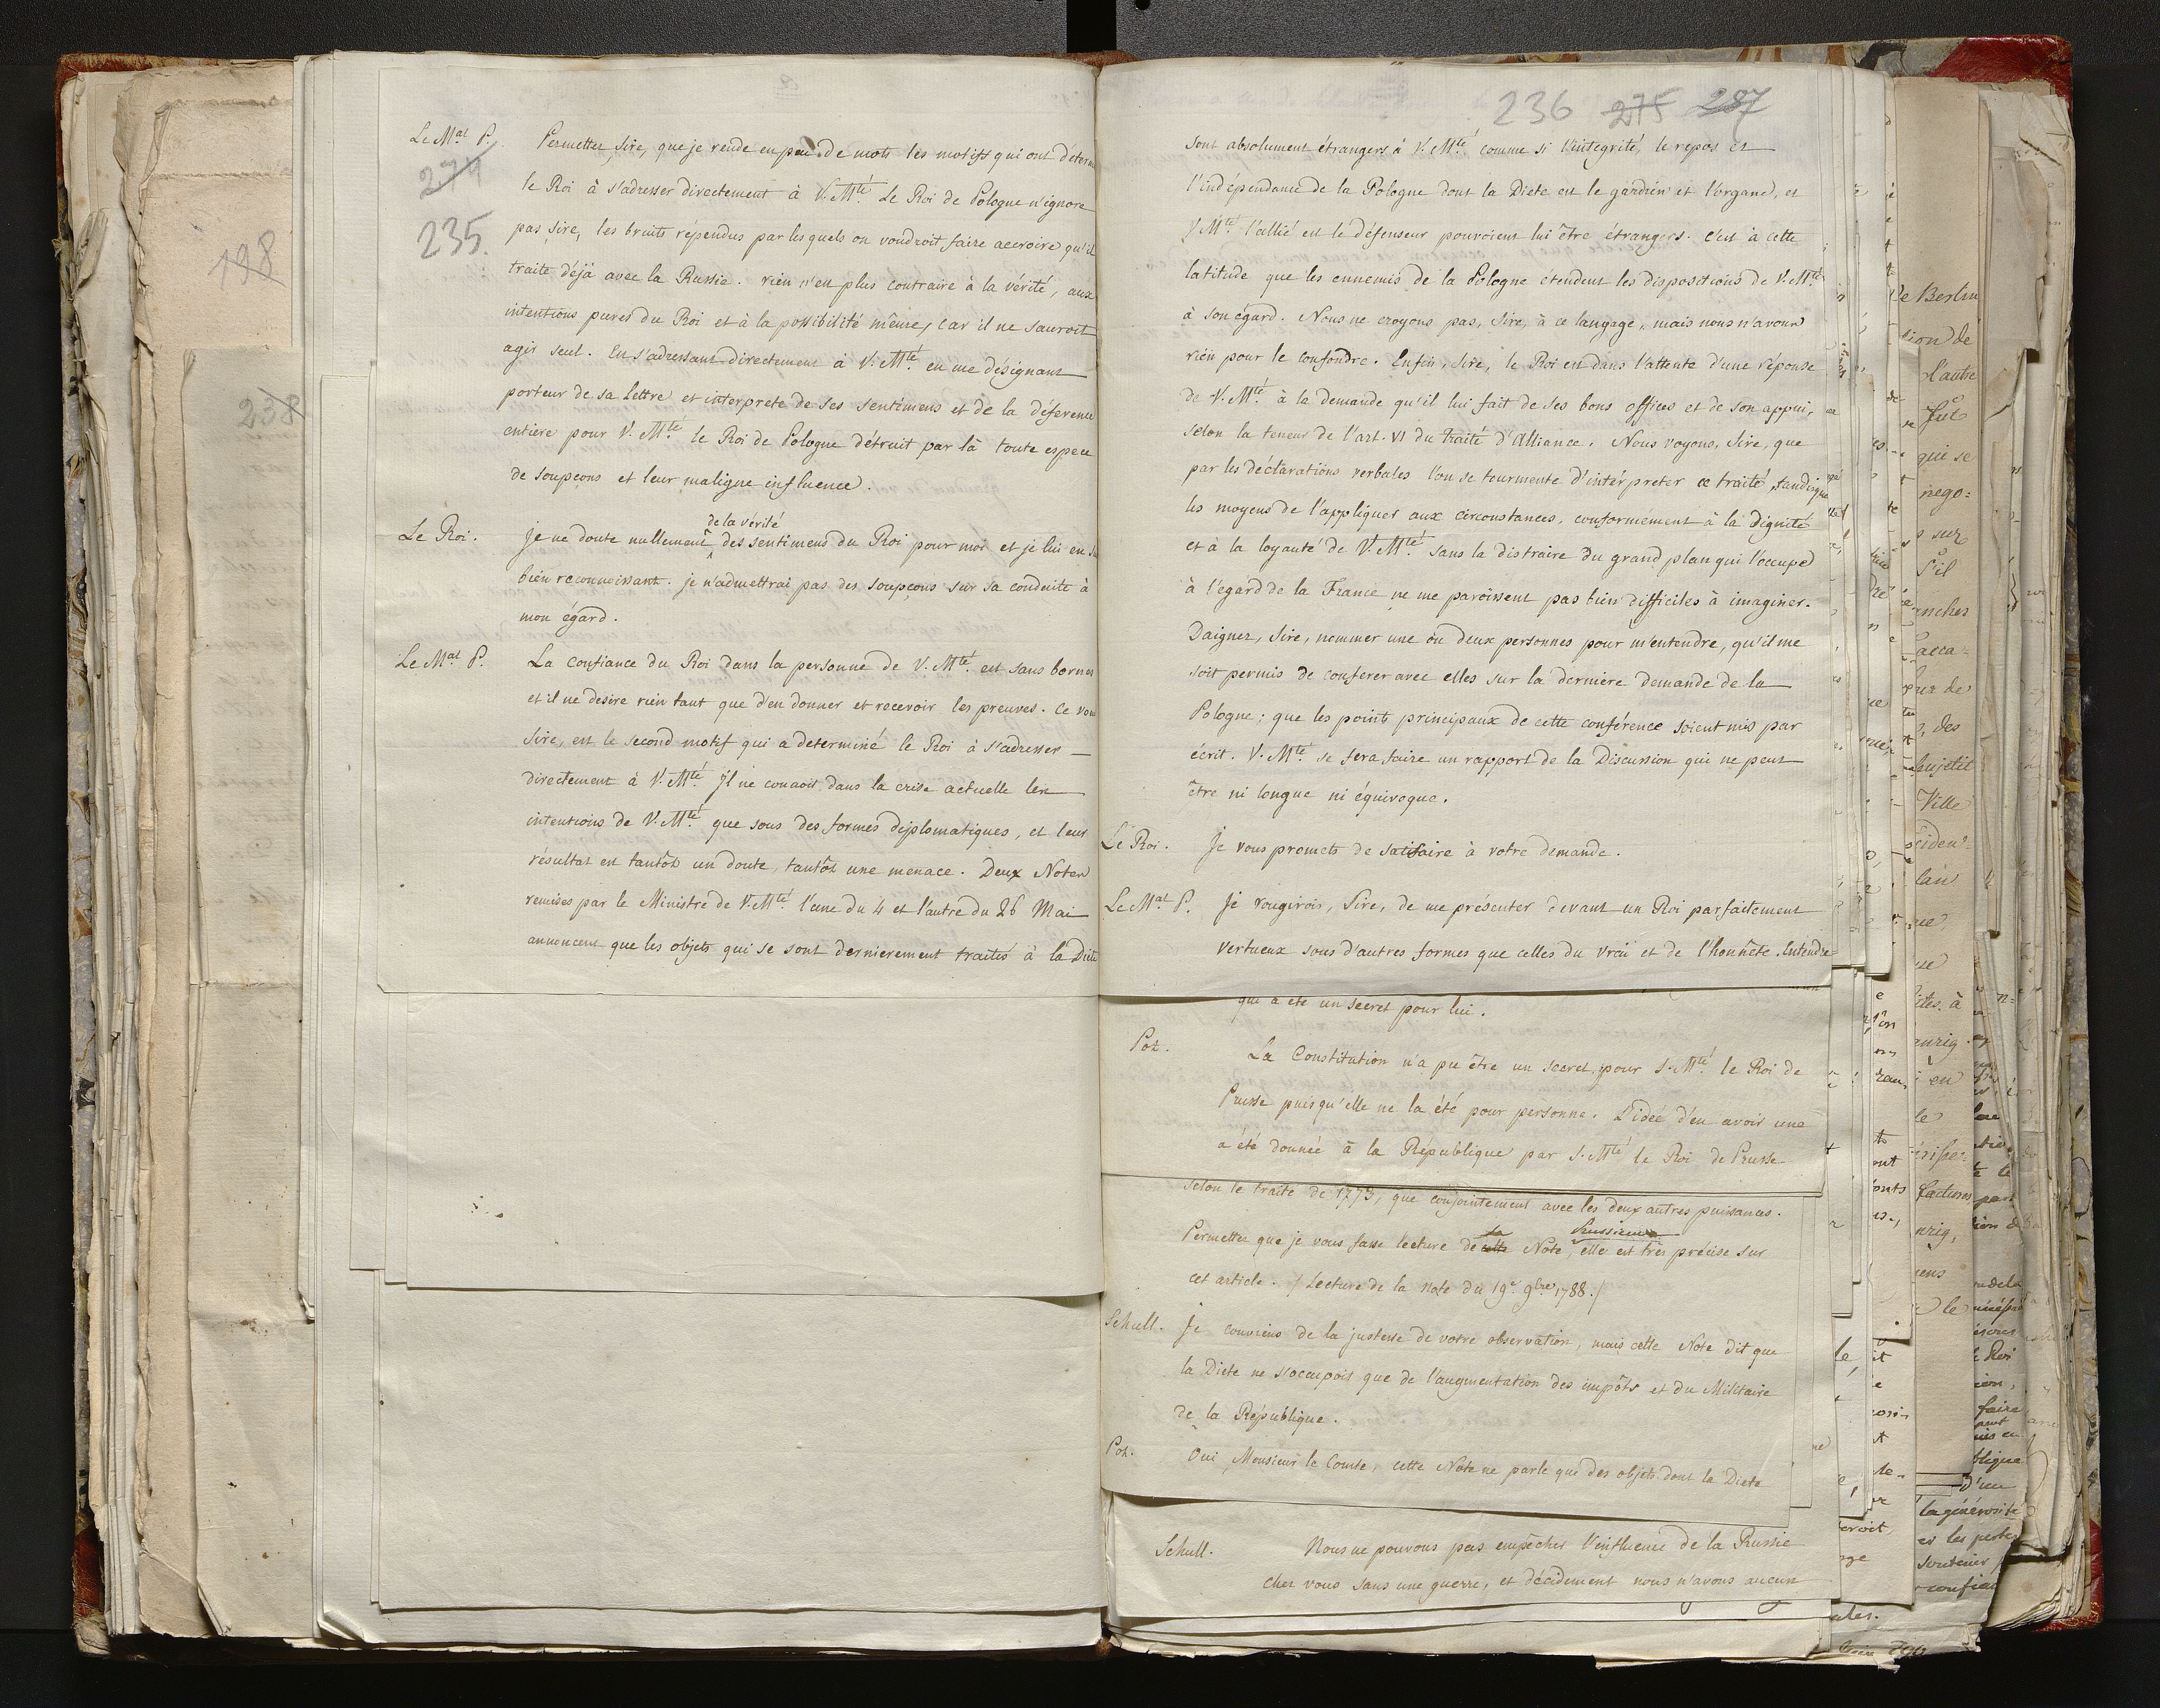 Le Mal P. Permettez, Sire, que je rende en peu de mots les motifs qui ont déterm
271
le Roi à s'adresser directement à V. Mté. Le Roi de Pologne n'ignore
235.
pas Sire, les bruits répendus par lesquels on voudroit faire accroire qu'il
traite déjà avec la Russie. rien n'est plus contraire à la vérité, aux
intentions pures du Roi et à la possibilité même, car il ne sauroit
agir seul. En s'adressant directement à V. Mté. en me désignant
porteur de sa Lettre et interprete de ses sentimens et de la déference
entiere pour V. Mté. le Roi de Pologne détruit par là toute espece
de soupçons et leur maligne influence.
de la vérité
Le Roi. Je ne doute nullement des sentimens du Roi pour moi et je lui en
bien reconnoissant. je n'admettrai pas des soupçons sur sa conduite à
mon égard.
Le Mal P. La confiance du Roi dans la personne de V. Mté. est sans bornes
et il ne desire rien tant que d'en donner et recevoir les preuves. Ce
Sire, est le second motif qui a determiné le Roi à s'adresser
directement à V. Mté. Il ne conaoit dans la crise actuelle les
intentions de V. Mté. que sous des formes diplomatiques, et leur
résultat est tantôt un doute, tantôt une menace. Deux Notes
remises par le Ministre de V. Mté. l'une du 4 et l'autre du 26 Mai
annoncent que les objets qui se sont dernierement traités à la Diete
198
238
236 275 287
sont absolument étrangers à V. Mté. comme si l'integrité, le repos et
l'indépendance de la Pologne dont la Diete est le gardien et l'organe, et
V. Mté. l'allié et le défenseur pouvoient lui être étrangers. C'est à cette
latitude que les ennemis de la Pologne étendent les dispositions de V. Mté
à son égard. Nous ne croyons pas, Sire, à ce langage, mais nous n'avons
rien pour le confondre. Enfin, Sire, le Roi est dans l'attente d'une réponse
de V. Mté. à la demande qu'il lui fait de ses bons offices et de son appui,
selon la teneur de l'art. VI du Traité d'Alliance. Nous voyons, Sire, que
par les déclarations verbales l'on se tourmente d'intérpreter ce traité, tandisque
les moyens de l'appliquer aux circonstances, conformement à la dignité
et à la loyauté de V. Mté. sans la distraire du grand plan qui l'occupe
à l'égard de la France ne me paroissent pas bien difficiles à imaginer.
Daignez, Sire, nommer une ou deux personnes pour m'entendre, qu'il me
soit permis de conferer avec elles sur la derniere demande de la
Pologne; que les points principaux de cette conférence soient mis par
écrit. V. Mté. se fera faire un rapport de la Discussion qui ne peut
être ni longue ni équivoque.
Le Roi. Je vous promets de satisfaire à votre demande.
Le Mal P. Je rougirois, Sire, de me présenter devant un Roi parfaitement
vertueux sous d'autres formes que celles du vrai et de l'honnête. Entendre
qui a été un secret pour lui.
Pot. La Constitution n'a pu être un secret pour S. Mté. le Roi de
Prusse puisqu'elle ne la été pour personne. L'idée d'en avoir une
a été donnée à la République par S. Mté le Roi de Prusse
selon le traité de 1773, que conjointement avec les deux autres puissances.
la Prussienne
Permettez que je vous fasse lecture de cette Note, elle est très précise sur
cet article. / Lecture de la note du 19e. 9bre 1788. /
Schull. Je conviens de la justesse de votre observation, mais cette Note dit que
la Diete ne s'occupoit que de l'augmentation des impôts et du Militaire
de la République.
Pot. Oui, Monsieur le Comte, cette Note ne parle que des objets dont la Diete
Schull. Nous ne pouvons pas empêcher l'influence de la Russie
chez vous sans une guerre, et décidement nous n'avons aucun
de Berlin
l'autre
fut
qui se
nego=
sur
s'il
des
Ville
faire
la générosité
soutenir